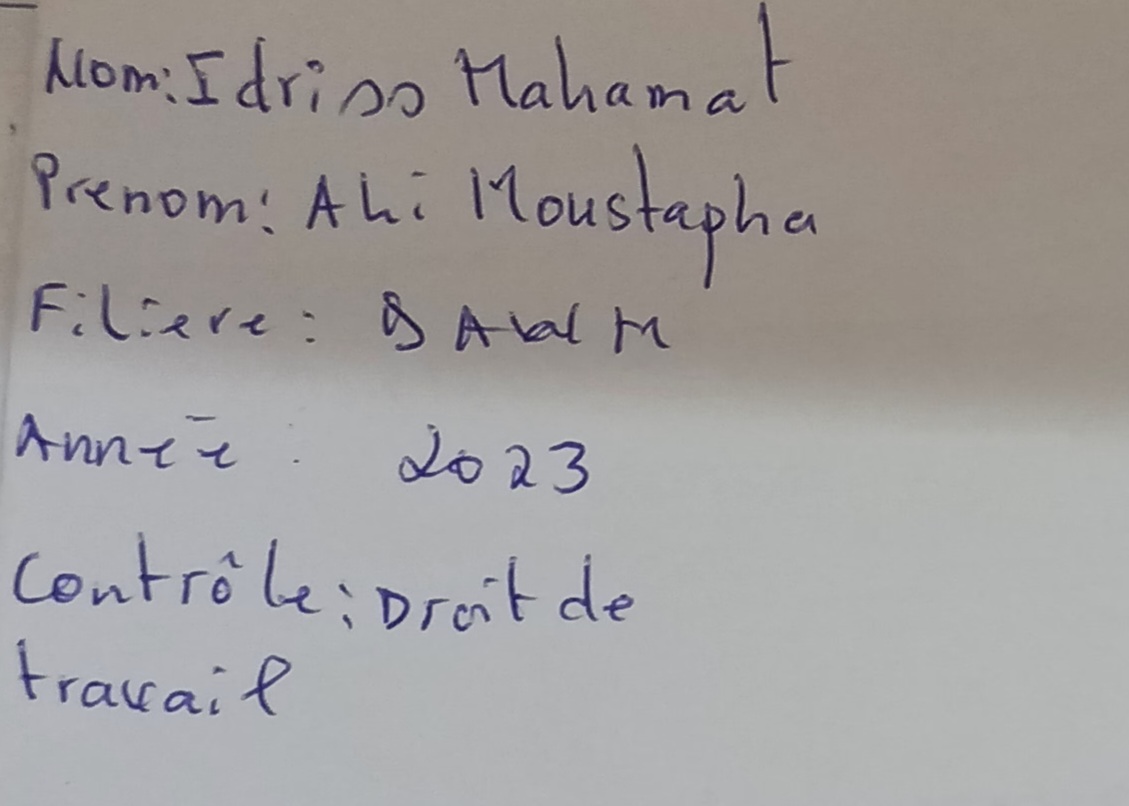 Nom: Idriss Mahamat
Prenom: Ali Moustapha
Filiere :
Année : 2023
Contrôle : Droit de
travail